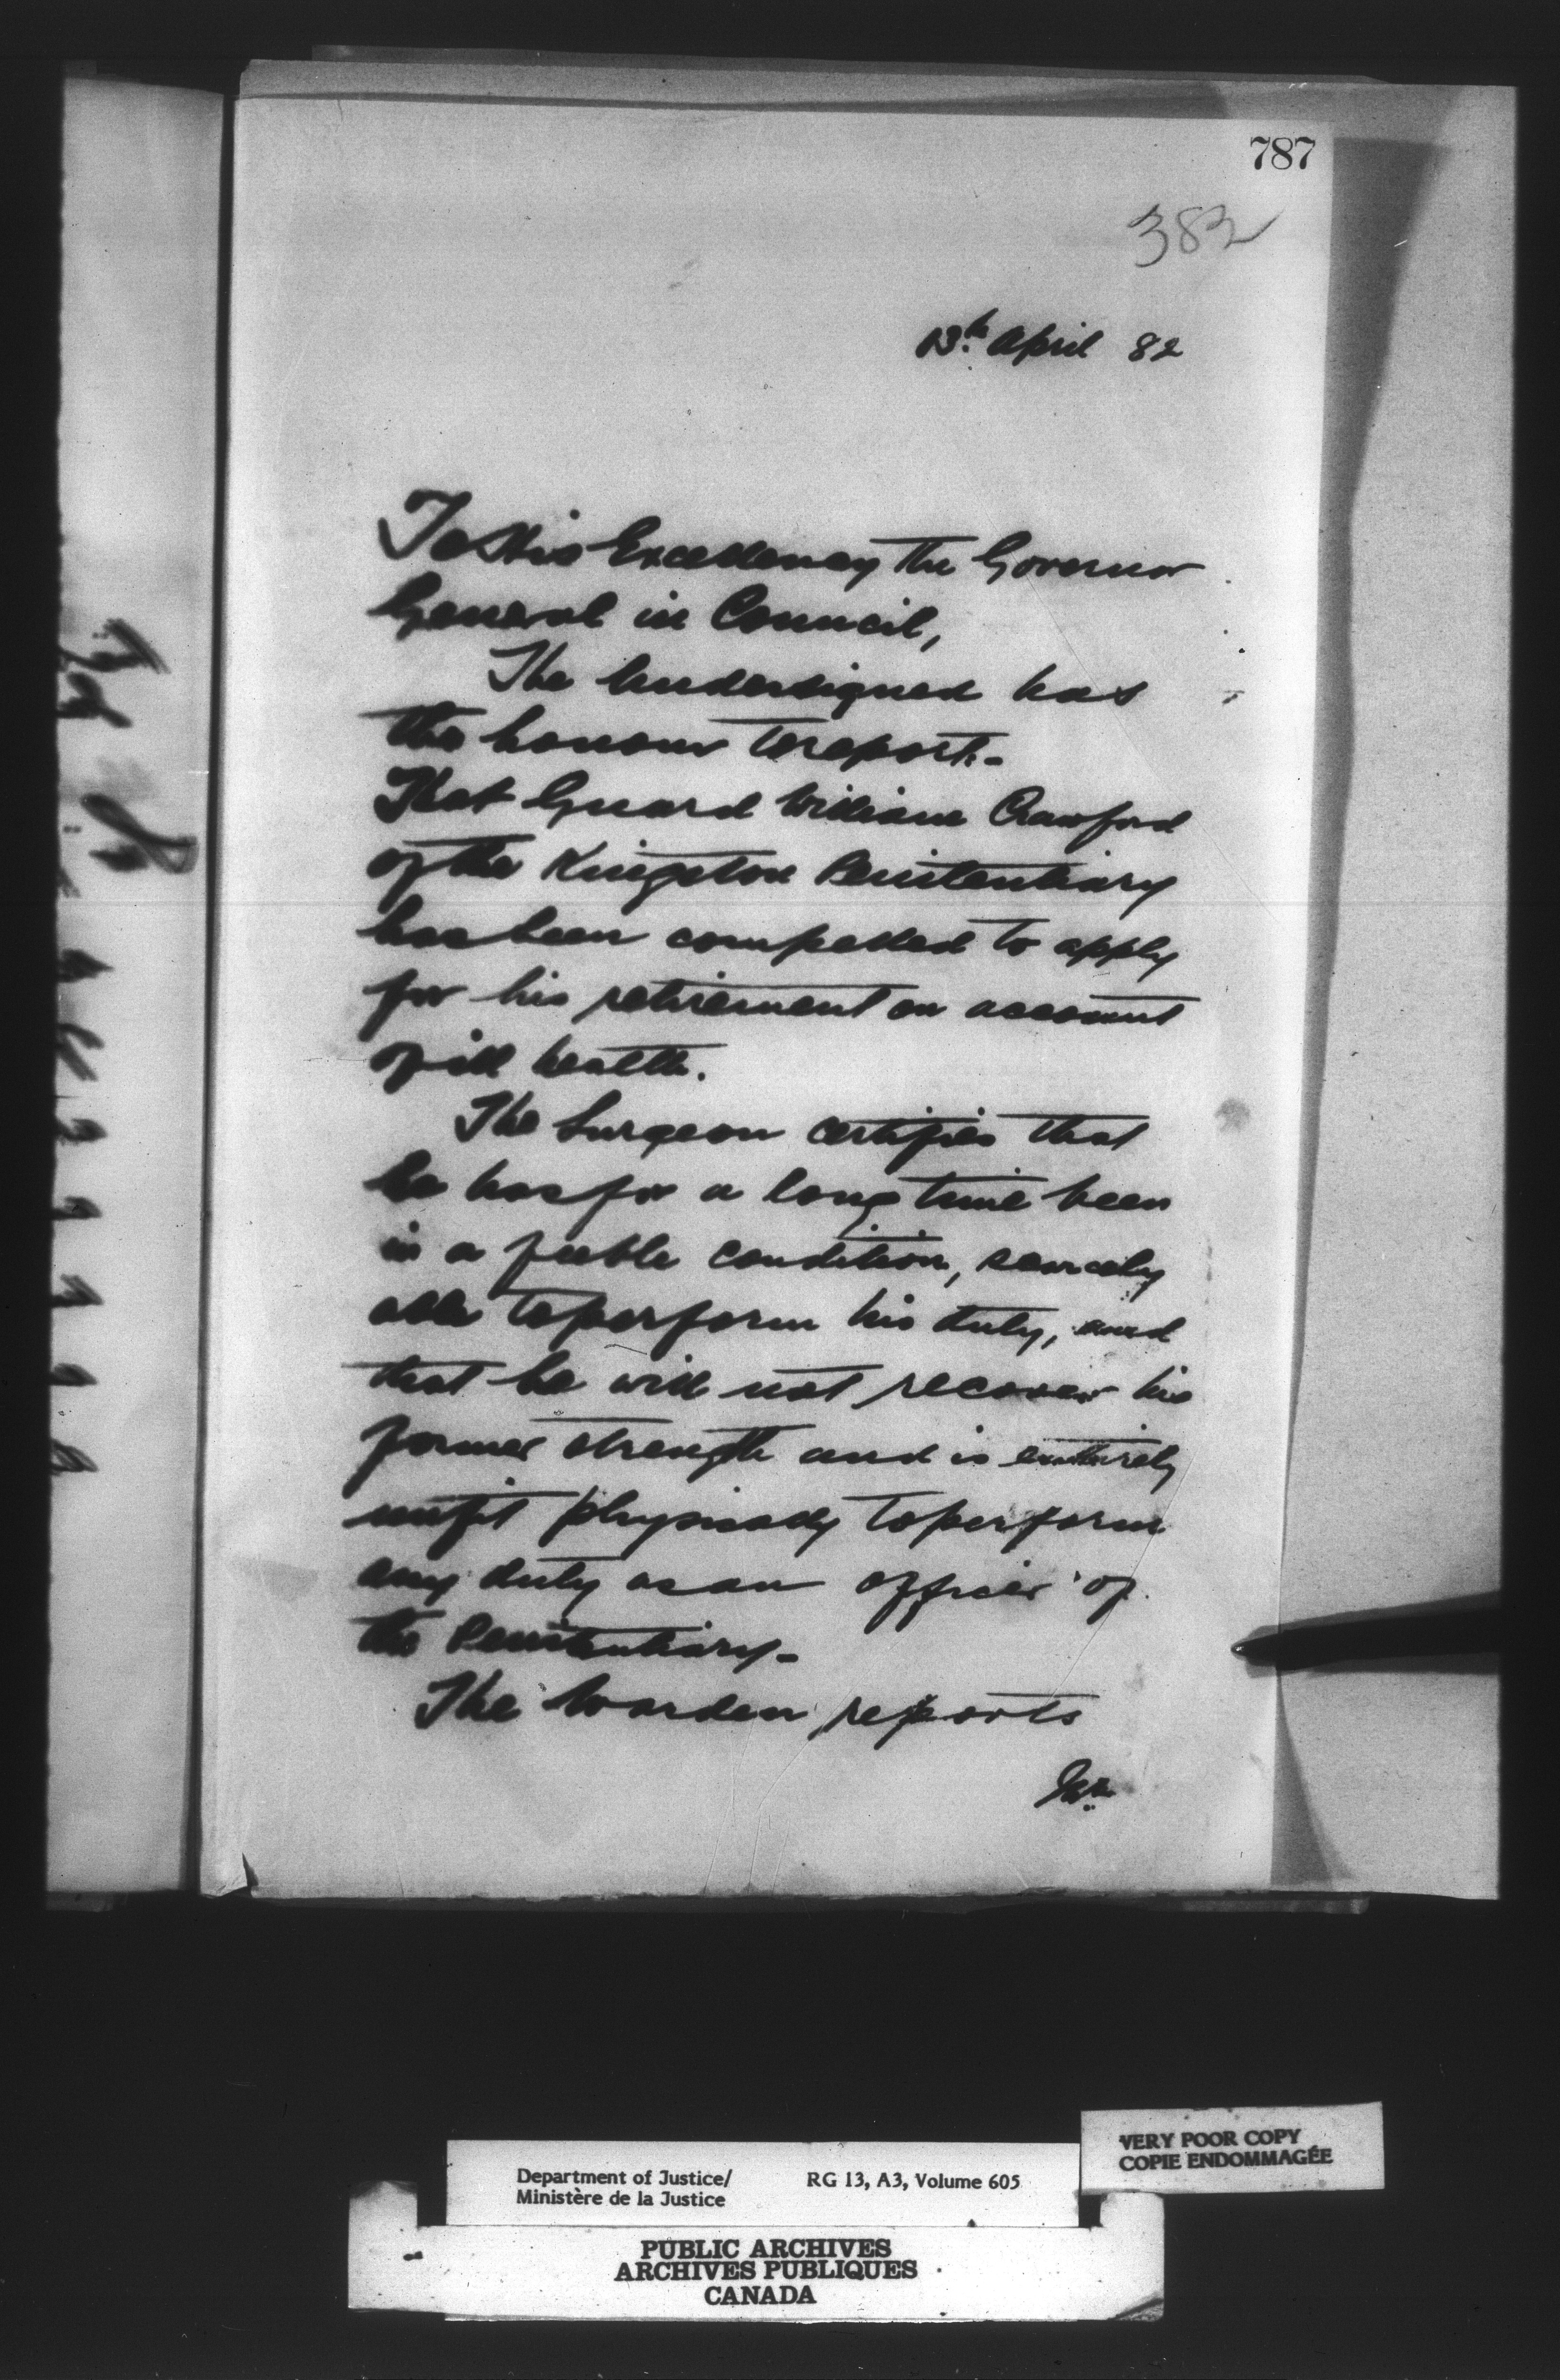 787
382
13th April 82
To His Excellency the Governor
General in Council,
The Undersigned has
the honour to report.-
That Guard William Crawford
of the Kingston Penitentiary
has been compelled to apply
for his retirement on account
of ill health.
The Surgeon certifies that
he has for a long time been
in a feeble condition, scarcely
able to perform his duty, and
that he will not recover his
former strength and is entirely
unfit physically to perform
any duty as an officer of
the Penitentiary-
The Warden reports
VERY POOR COPY
COPIE ENDOMMAGÉE
Department of Justice/ RG 13, A3, Volume 605
Ministère de la Justice
PUBLIC ARCHIVES
ARCHIVES PUBLIQUES
CANADA